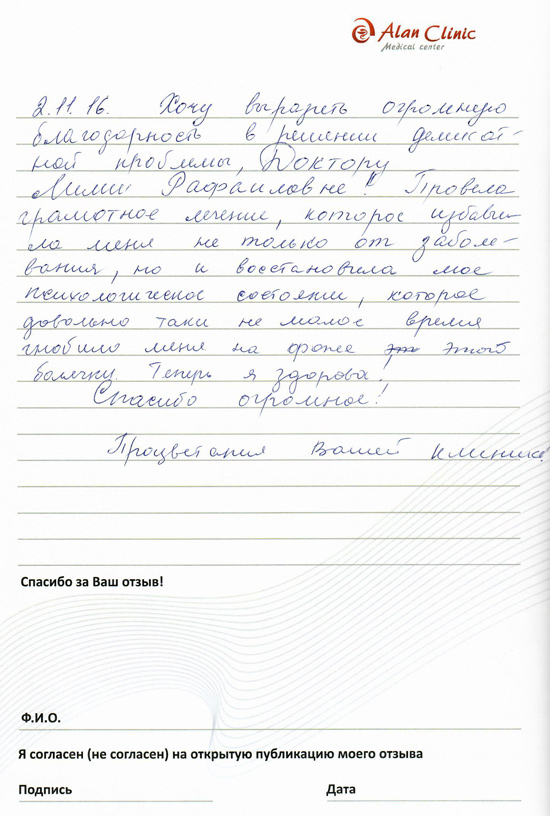 Alan Clinic
Medical center
2.11.16. Хочу выразить огромную
благодарность в решении деликат-
ной проблемы, Доктору
Лилии Рафаиловне! Провела
грамотное лечение, которое избави-
ла меня не только от заболе-
вания, но и восстановила мое
психологическое состоянии, которое
довольно таки не малое время
гнобило меня на фоне этой
болячки. Теперь я здорова!
Спасибо огромное!
Процветания Вашей клинике!
Спасибо за Ваш отзыв!
Ф.И.О.
Я согласен (не согласен) на открытую публикацию моего отзыва
Подпись Дата